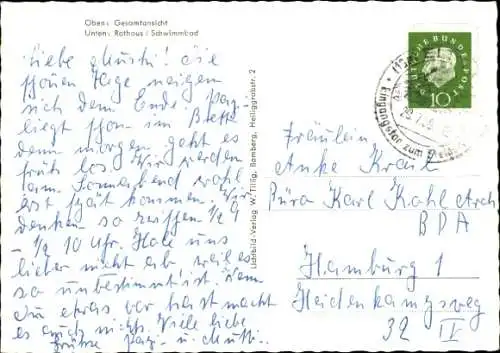 Oben: Gesamtansicht
Unten: Rathaus / Schwimmbad
Liebe Musch! Die
schönen Tage neigen
sich dem Ende. Papi
liegt schon im Bett
denn morgen geht es
früh los. Wir werden
am Sonnabend wohl
erst spät kommen. Wir
denken so zwischen 1/2 9
- 1/2 10 Uhr. Hole uns
lieber nicht ab weil es
so unbestimmt ist. Wenn
Du etwas vor hast macht
es auch nichts. Viele liebe
Grüße Papi u. Mutti.
Lichtbild-Verlag W. Tillig, Bamberg, Heiliggrabstr. 2
DEUTSCHE BUNDESPOST
10
Eingangstor zum
Fräulein
Anke Krait
Büro Karl Kohl Arch
BDA
Hamburg 1
Heidenkampsweg
32 IV